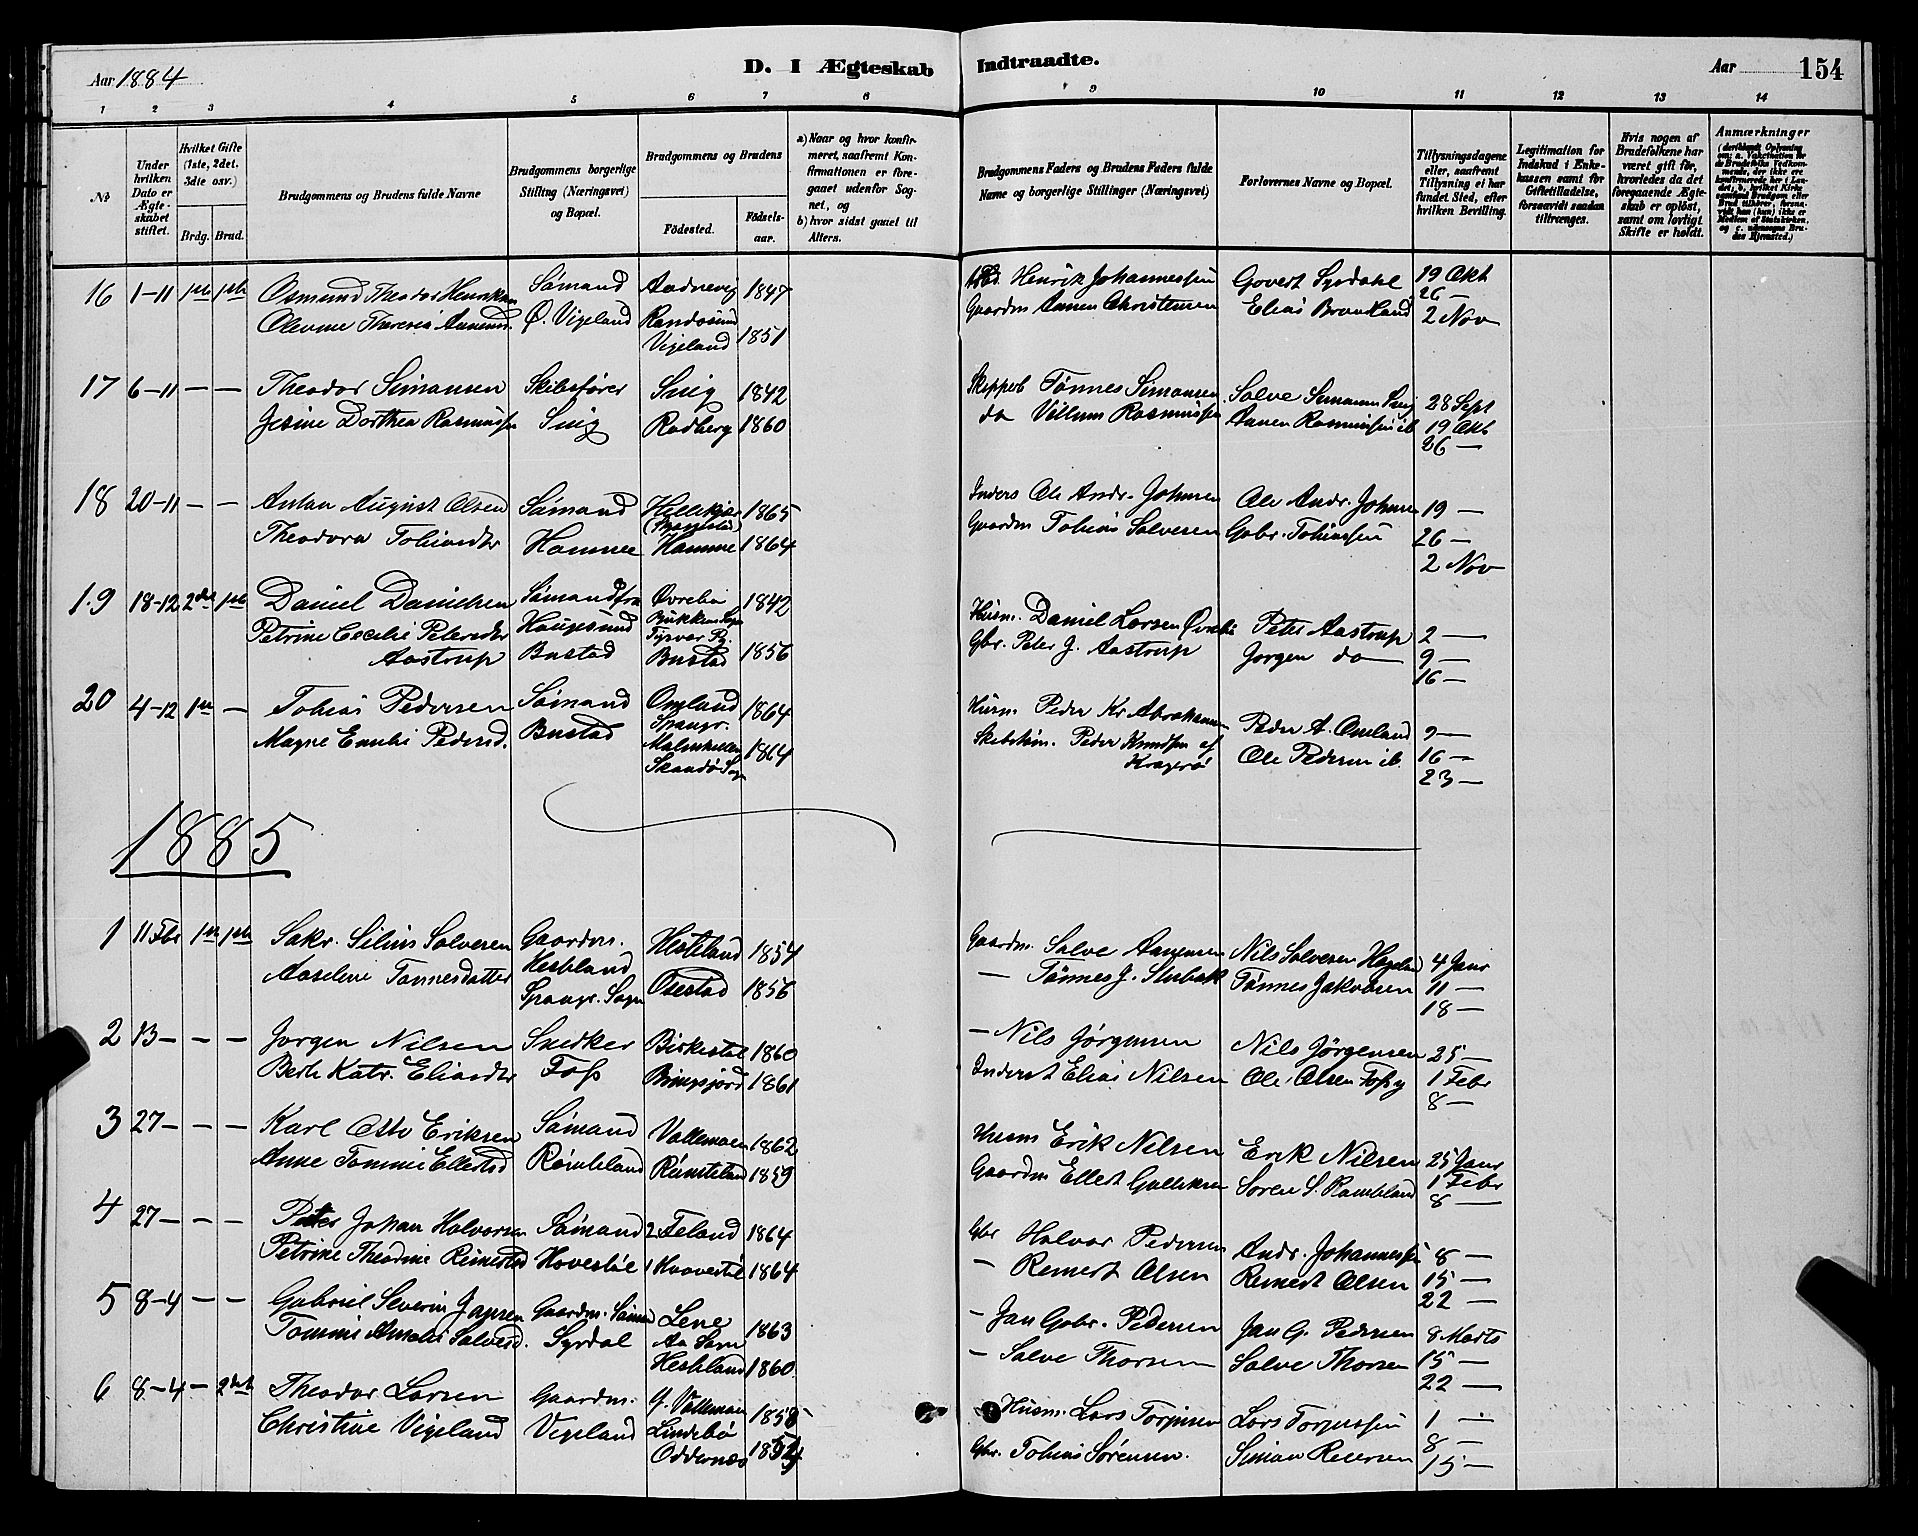 Aar 1884
D. I Ægteskab Indtraadte.
Aar 154
1 2 3 4 5 6 7 8 9 10 11 12 13 14
№
Under hvilken Dato er Ægteskabet stiftet.
Hvilket Gifte (1ste, 2det, 3die osv.)
Brdg. Brud.
Brudgommens og Brudens fulde Navne
Brudgommens borgerlige Stilling (Næringsvei) og Bopæl.
Brudgommens og Brudens
Födested. Födselsaar.
a) Naar og hvor konfirmeret, saafremt Konfirmationen er foregaaet udenfor Sognet, og
b) hvor sidst gaaet til Alters.
Brudgommens Faders og Brudens Faders fulde Navne og borgerlige Stillinger (Næringsvei)
Forlovernes Navne og Bopæl.
Tillysningsdagene eller, saafremt Tillysning ei har fundet Sted, efter hvilken Bevilling.
Legitimation for Indskud i Enkekassen samt for Giftetilladelse, forsaavidt saadan tiltrænges.
Hvis nogen af Brudefolkene har været gift för, hvorledes da det foregaaende Ægteskab er oplöst, samt om lovligt Skifte er holdt.
Anmærkninger
16 1-11 1ste 1ste Osmund Theodor Henriksen Sömand Aadnevig 1847 Henrik Johannessen Govert Syrdahl 19 Okt
Olevine Theresia Aanens. Ø. Vigeland Randösund Gaardm Aanen Christensen Elias Brandland 26 —
Vigeland 1851 2 Nov
17 6-11 — — Theodor Simonsen Skibsförer Snig 1842 Skipperb Tönnes Simonsen Salve Simonsen Snig 28 Sept
Jesine Dorthea Rasmussen Snig Rødberg 1860 do Villum Rasmussen Aanen Rasmussen ib 19 Okt
26 —
18 20-11 — — Anton August Olsen Sömand 1865 Inders Ole Andr. Johnsen Ole Andr. Johnsen 19 —
Theodora Tobiasdtr Homme Homme 1864 Gaardm Tobias Salvesen Gabr. Tobiassen 26 —
2 Nov
19 18-12 2det 1ste Daniel Danielsen Sömand fra Øvrebø 1842 Husm. Daniel Larsen Peter Aastrup 2 —
Petrine Cecilie Petersdtr Haugesund Tysvær Pg. Gbr. Peter J. Aastrup Jørgen do 9 —
Aastrup Bustad Bustad 1856 16 —
20 4-12 1ste — Tobias Pedersen Sömand Omland 1864 Husm. Peder Kr Abrahamsen Peder A. Omland 9 —
Magne Emilie Pedersd. Bustad Spangr. Skibstöm. Peder Knudsen af Ole Pedersen ib. 16 —
Skaadö Sogn 1864 Kragerö 23 —
1885
1 11 Febr 1ste 1ste Sakr. Silius Salvesen Gaardm. Hesteland 1854 Gaardm. Salve Aanensen Nils Salvesen 4 Janr
Aaseline Tönnesdatter Hesteland Osestad 1856 — Tönnes J. Stubstk Tönnes Jakobsen 11 —
Spangr. Sogn 18 —
2 13 — — — Jørgen Nilsen Snedker Birkestøl 1860 — Nils Jörgensen Nils Jörgensen 25 —
Berte Katr. Eliasdtr Foss 1861 Inderst Elias Nilsen Ole Olsen 1 Febr
8 —
3 27 — — — Karl Otto Eriksen Sömand Vallemoen 1862 Husm Erik Nilsen Erik Nilsen 25 Janr
Anne Tomine Ellertsd Römteland Römteland 1859 Gaardm Ellert Gulliksen Søren S. Römteland 1 Febr
8 —
4 27 — — — Peter Johan Halvorsen Sömand 2 Feland 1864 Gbr Halvor Pedersen Andr. Johannessen 8 —
Petrine Theodine Reinertsd 1864 — Reinert Olsen Reinert Olsen 15 —
22 —
5 8-4 — — Gabriel Severin Jansen Gaardm. Lene 1863 — Jan Gabr. Pedersen Jan G. Pedersen 8 Marts
Tomine Amalie Salvesd. Syrdal Aa Sogn — Salve Thorsen Salve Thorsen 15 —
Hesteland 1860 22 —
6 8-4 — 2det Theodor Larsen Gaardm. Vallemoen 1858 Husm. Lars Torjusen Lars Torjussen 1 —
Christine Vigeland Vigeland Lindebø 8 —
Oddernes Gbr. Tobias Sörensen. Simon Reiersen 15 —